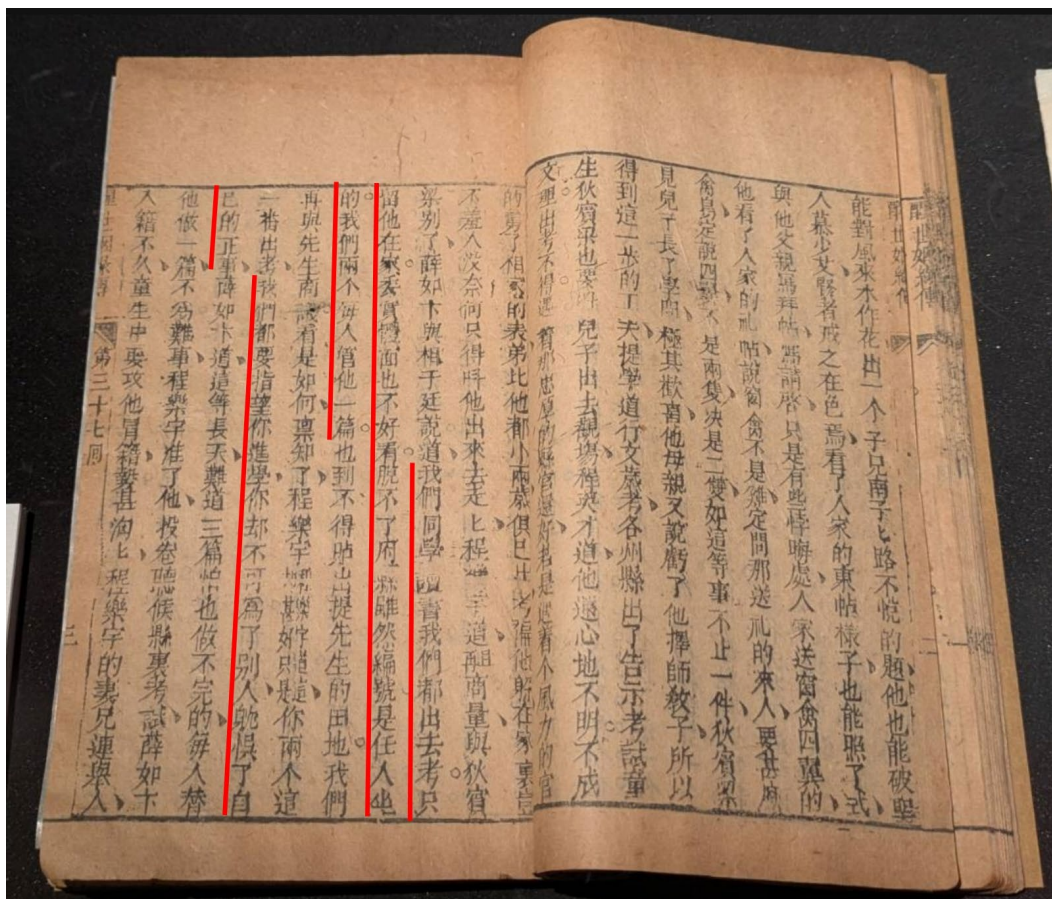 醒世姻緣傳
二
能對風來水作花出一个子見南子匕路不悅的題他也能破聖
人慕少艾賢者戒之在色焉看了人家的柬帖樣子也能照了式
與他父親寫拜帖寫請啓只是有些悖晦處人家送窗禽四翼的
他看了人家的礼帖說窗禽不是雞定問那送礼的來人要甚麽
禽鳥定說四翼不是兩隻决是二雙如這等事不止一件狄賓梁
見兒子長了學問極其歡喜他母親又說虧了他擇師教子所以
得到這一步的工夫提學道行文歲考各州縣出了告示考試童
生狄賓梁也要叫兒子出去觀塲程英才道他還心地不明不成
文理出考不得遇着那忠厚的好官還好若是遇着个風力的官
的了相的表弟比他都小兩歲俱已出考偏他躱在家裏豈
不羞人没奈何只得叫他出來去走匕程樂宇道且商量與狄賓
梁別了薛如卞與相于廷說道我們同學讀書我們都出去考只
留他在家委實體面也不好看脫不了府縣雖然編號是任人坐
的我們兩个每人管他一篇也到不得貼出提先生的田地我們
再與先生商議看是如何禀知了程樂宇程樂宇道這甚好只是你兩个這
一番出考我們都要指望你進學你却不可爲了別人躭悞了自
已的正事薛如卞道這等長天難道三篇怕也做不完的每人替
他做一篇不爲難事程樂宇准了他投卷聽候縣裏考試薛如卞
入籍不久童生中要攻他冒籍甚洶匕程樂宇的妻兒連與人
第三十七囘
三